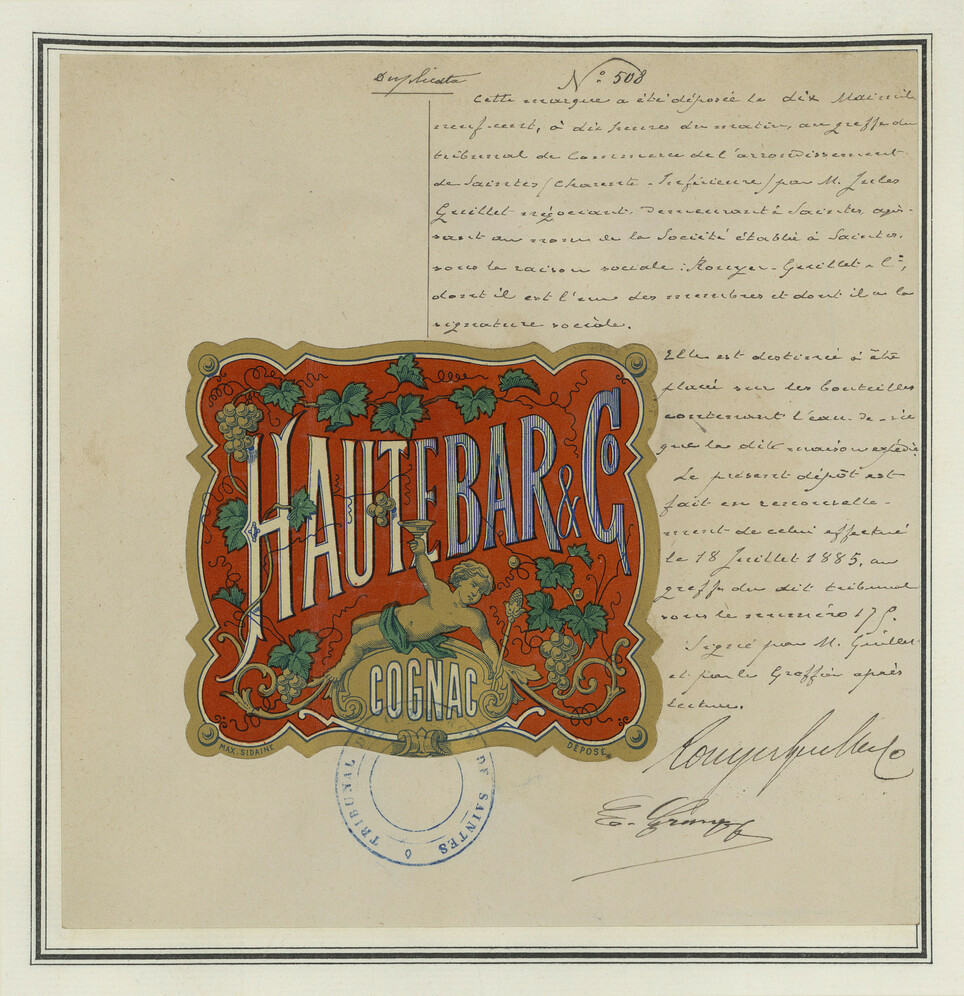 Duplicata
N° 508
Cette marque a été déposée le dix Mai mil
neuf cent, à dix heures du matin, au greffe du
tribunal de Commerce de l'arrondissement
de Saintes (Charente-Inférieure) par M. Jules
Guillet négociant, demeurant à Saintes, agis-
sant au nom de la Société établie à Saintes,
sous la raison sociale : Rouyer-Guillet & Cie,
dont il est l'un des membres et dont il a la
signature sociale.
Elle est destinée à être
placé sur les bouteilles
contenant l'eau-de-vie
que la dite maison expédie.
Le présent dépôt est
fait en renouvelle-
ment de celui effectué
le 18 Juillet 1885, au
greffe du dit tribunal
sous le numéro 175.
Signé par M. Guillet
et par le Greffier après
lecture.
HAUTEBAR & Co
COGNAC
MAX. SIDAINE
DÉPOSÉ
Rouyer Guillet & Co
TRIBUNAL
DE SAINTES